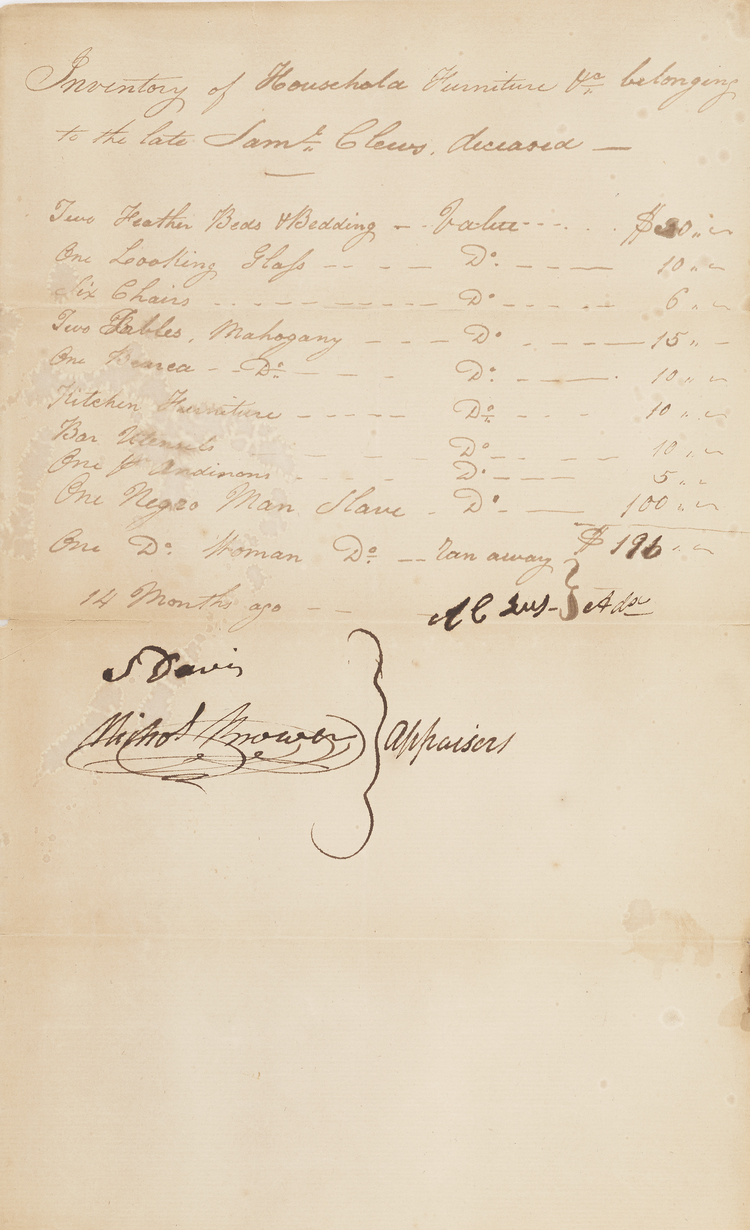 Inventory of Household Furniture &c belonging
to the late Saml. Clews, deceased —
Two Feather Beds & Bedding - - Value - - - . . . $ 30 „ ~
One Looking Glass - - - — Do. - - — — 10 „ ~
Six Chairs . . - - - - - - - - - Do. - - - - 6 „ ~
Two Tables, Mahogany — - - — Do. - - - — 15 „ ~
One - - Do. — - — Do. - — — 10 „ ~
Kitchen Furniture - - - - - Do. - - - — 10 „ ~
Bar Utensils - - - Do. - - - — 10 „ ~
One pr Andirons - - - - Do. - - — 5 „
One Negro Man Slave - Do. - — 100 „ ~
One Do. Woman Do. - - ran away $ 196 „ ~
14 Months ago - - — Adr
S Davis
Nichos Brower } Appraisers